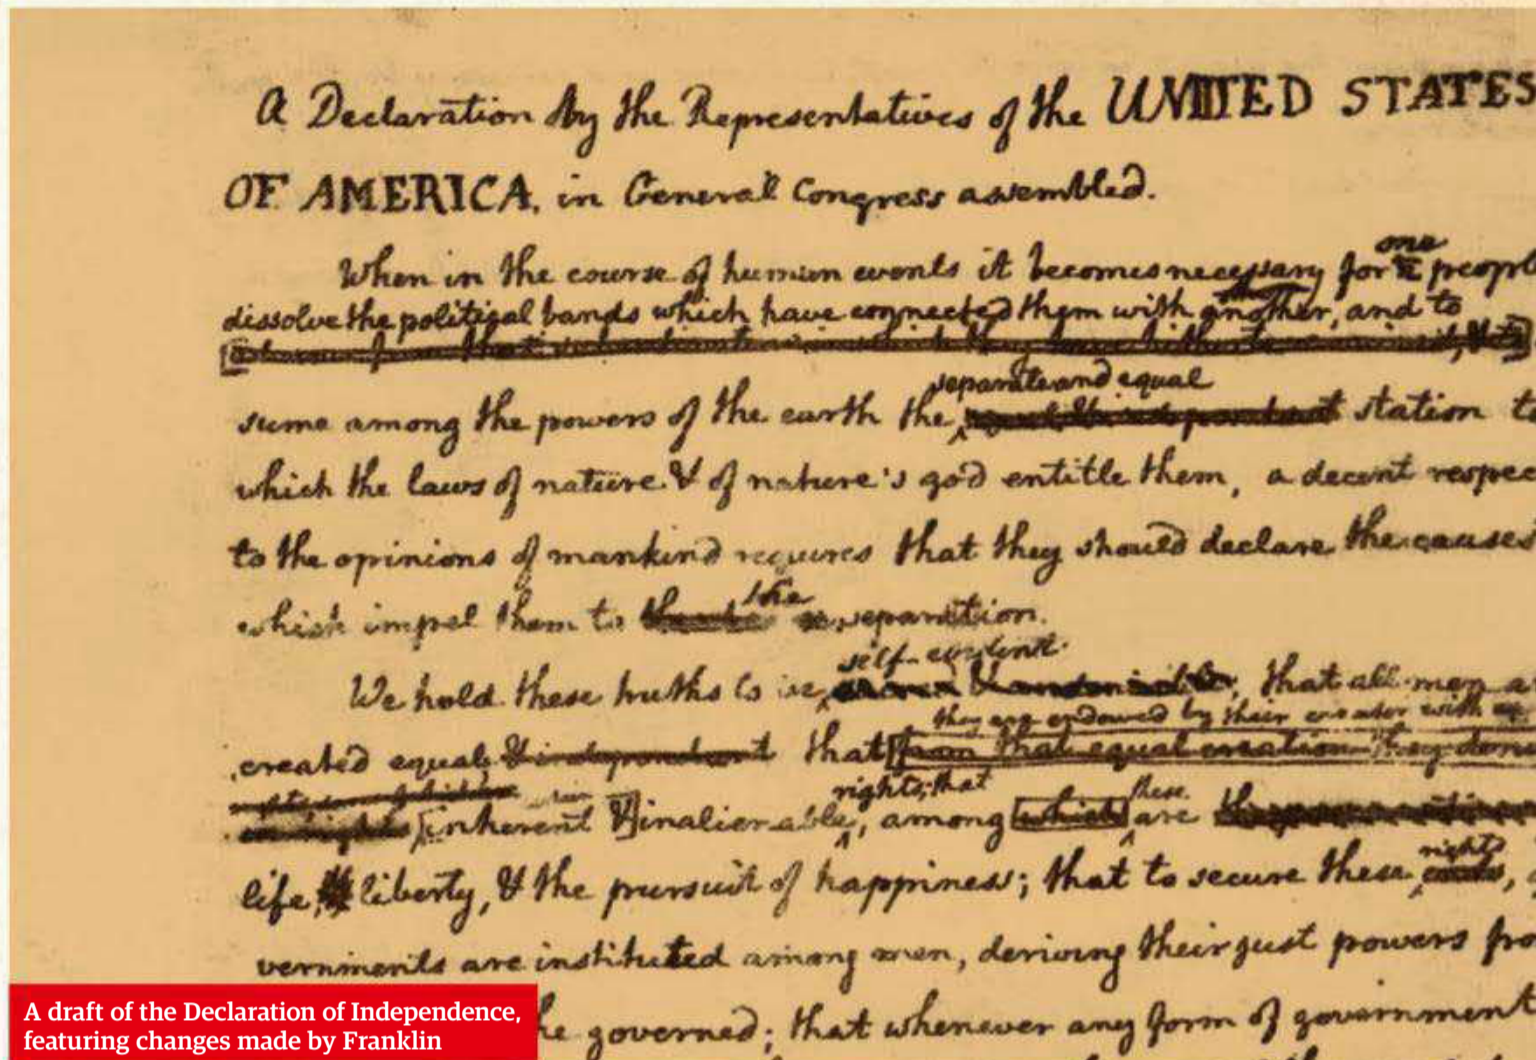 A Declaration by the Representatives of the UNITED STATES
OF AMERICA, in General Congress assembled.
one
When in the course of human events it becomes necessary for a people
dissolve the political bands which have connected them with another, and to
separate and equal
sume among the powers of the earth the station to
which the laws of nature & of nature's god entitle them, a decent respec
to the opinions of mankind requires that they should declare the causes
the
which impel them to separation.
self-evident
We hold these truths to be sacred & undeniable, that all men a
they are endowed by their creator with
created equal & independant that from that equal creation they
rights; that these
inherent & inalienable, among which are
rights
life, liberty, & the pursuit of happiness; that to secure these ends,
vernments are instituted among men, deriving their just powers fro
he governed; that whenever any form of government
A draft of the Declaration of Independence,
featuring changes made by Franklin